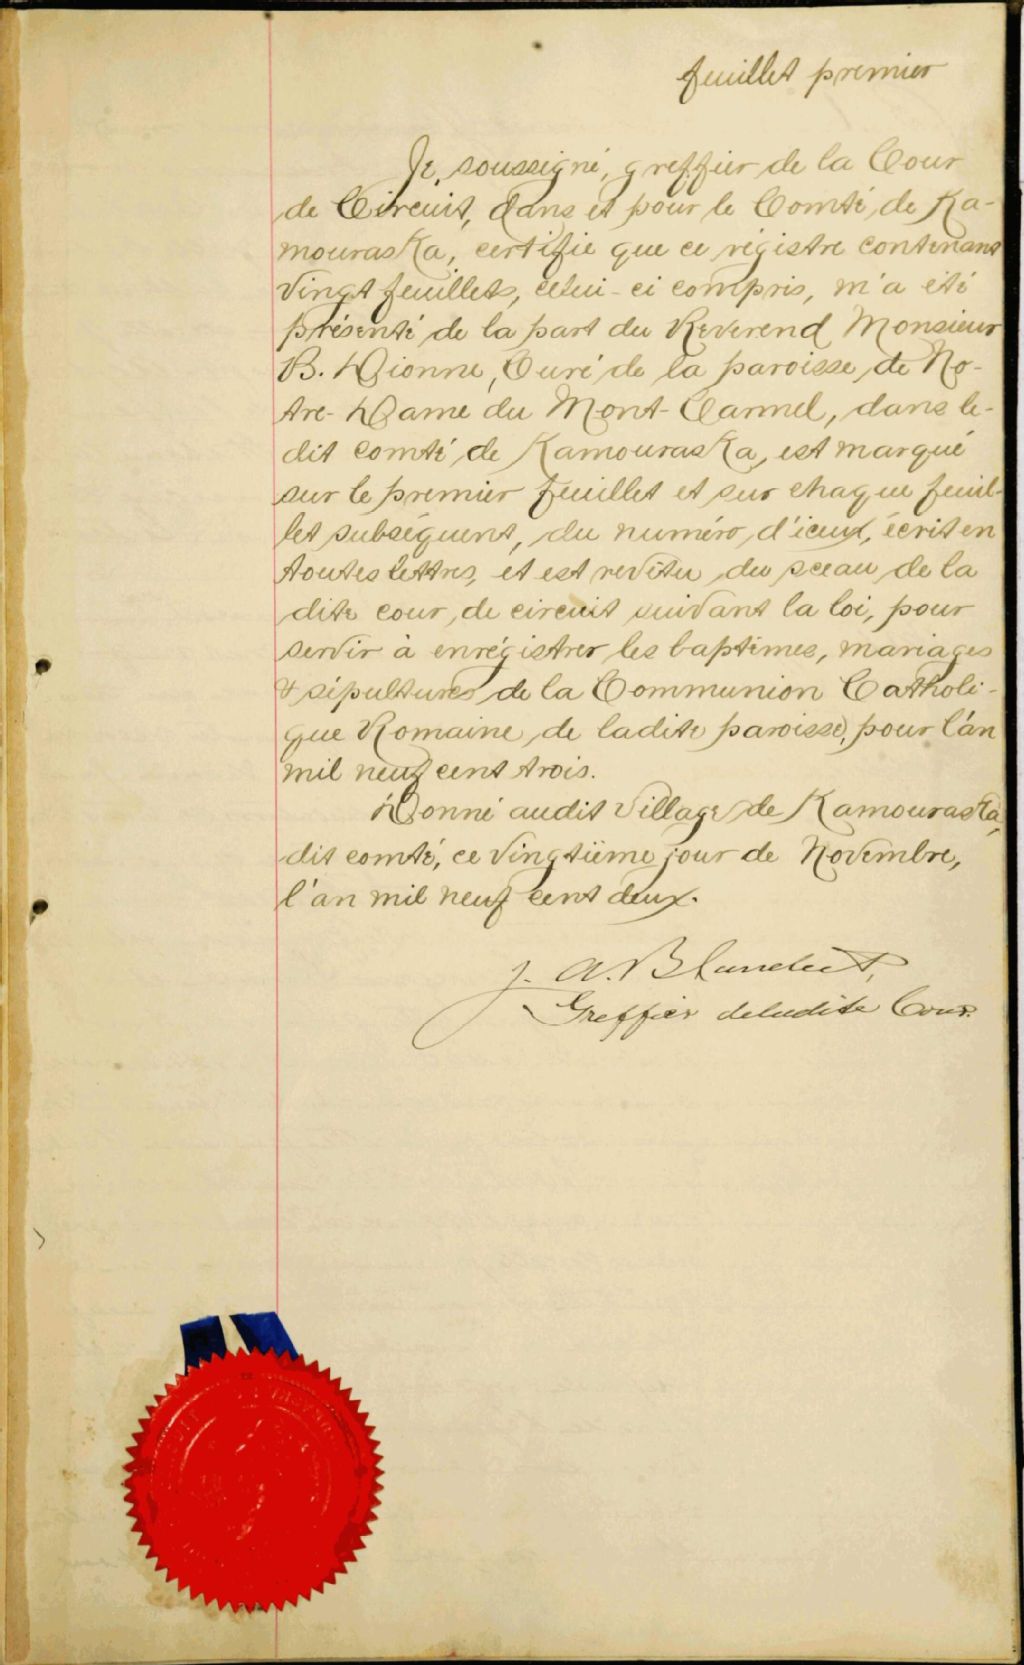 feuillet premier
Je, soussigné, greffier de la Cour
de Circuit, dans et pour le Comté de Ka-
mouraska, certifie que ce régistre contenant
vingt feuillets, celui-ci compris, m'a été
présenté de la part du Reverend Monsieur
B. Dionne, Curé de la paroisse de No-
tre-Dame du Mont-Carmel, dans le-
dit comté de Kamouraska, est marqué
sur le premier feuillet et sur chaque feuil-
let subséquent, du numéro d'iceux, écrit en
toutes lettres, et est revêtu du sceau de la
dite cour de circuit suivant la loi, pour
servir à enrégistrer les baptêmes, mariages
& sépultures de la Communion Catholi-
que Romaine de ladite paroisse, pour l'an
mil neuf cent trois.
Donné audit Village de Kamouraska,
dit comté, ce vingtième jour de Novembre,
l'an mil neuf cent deux.
J. A. Blanchet,
Greffier de ladite Cour.